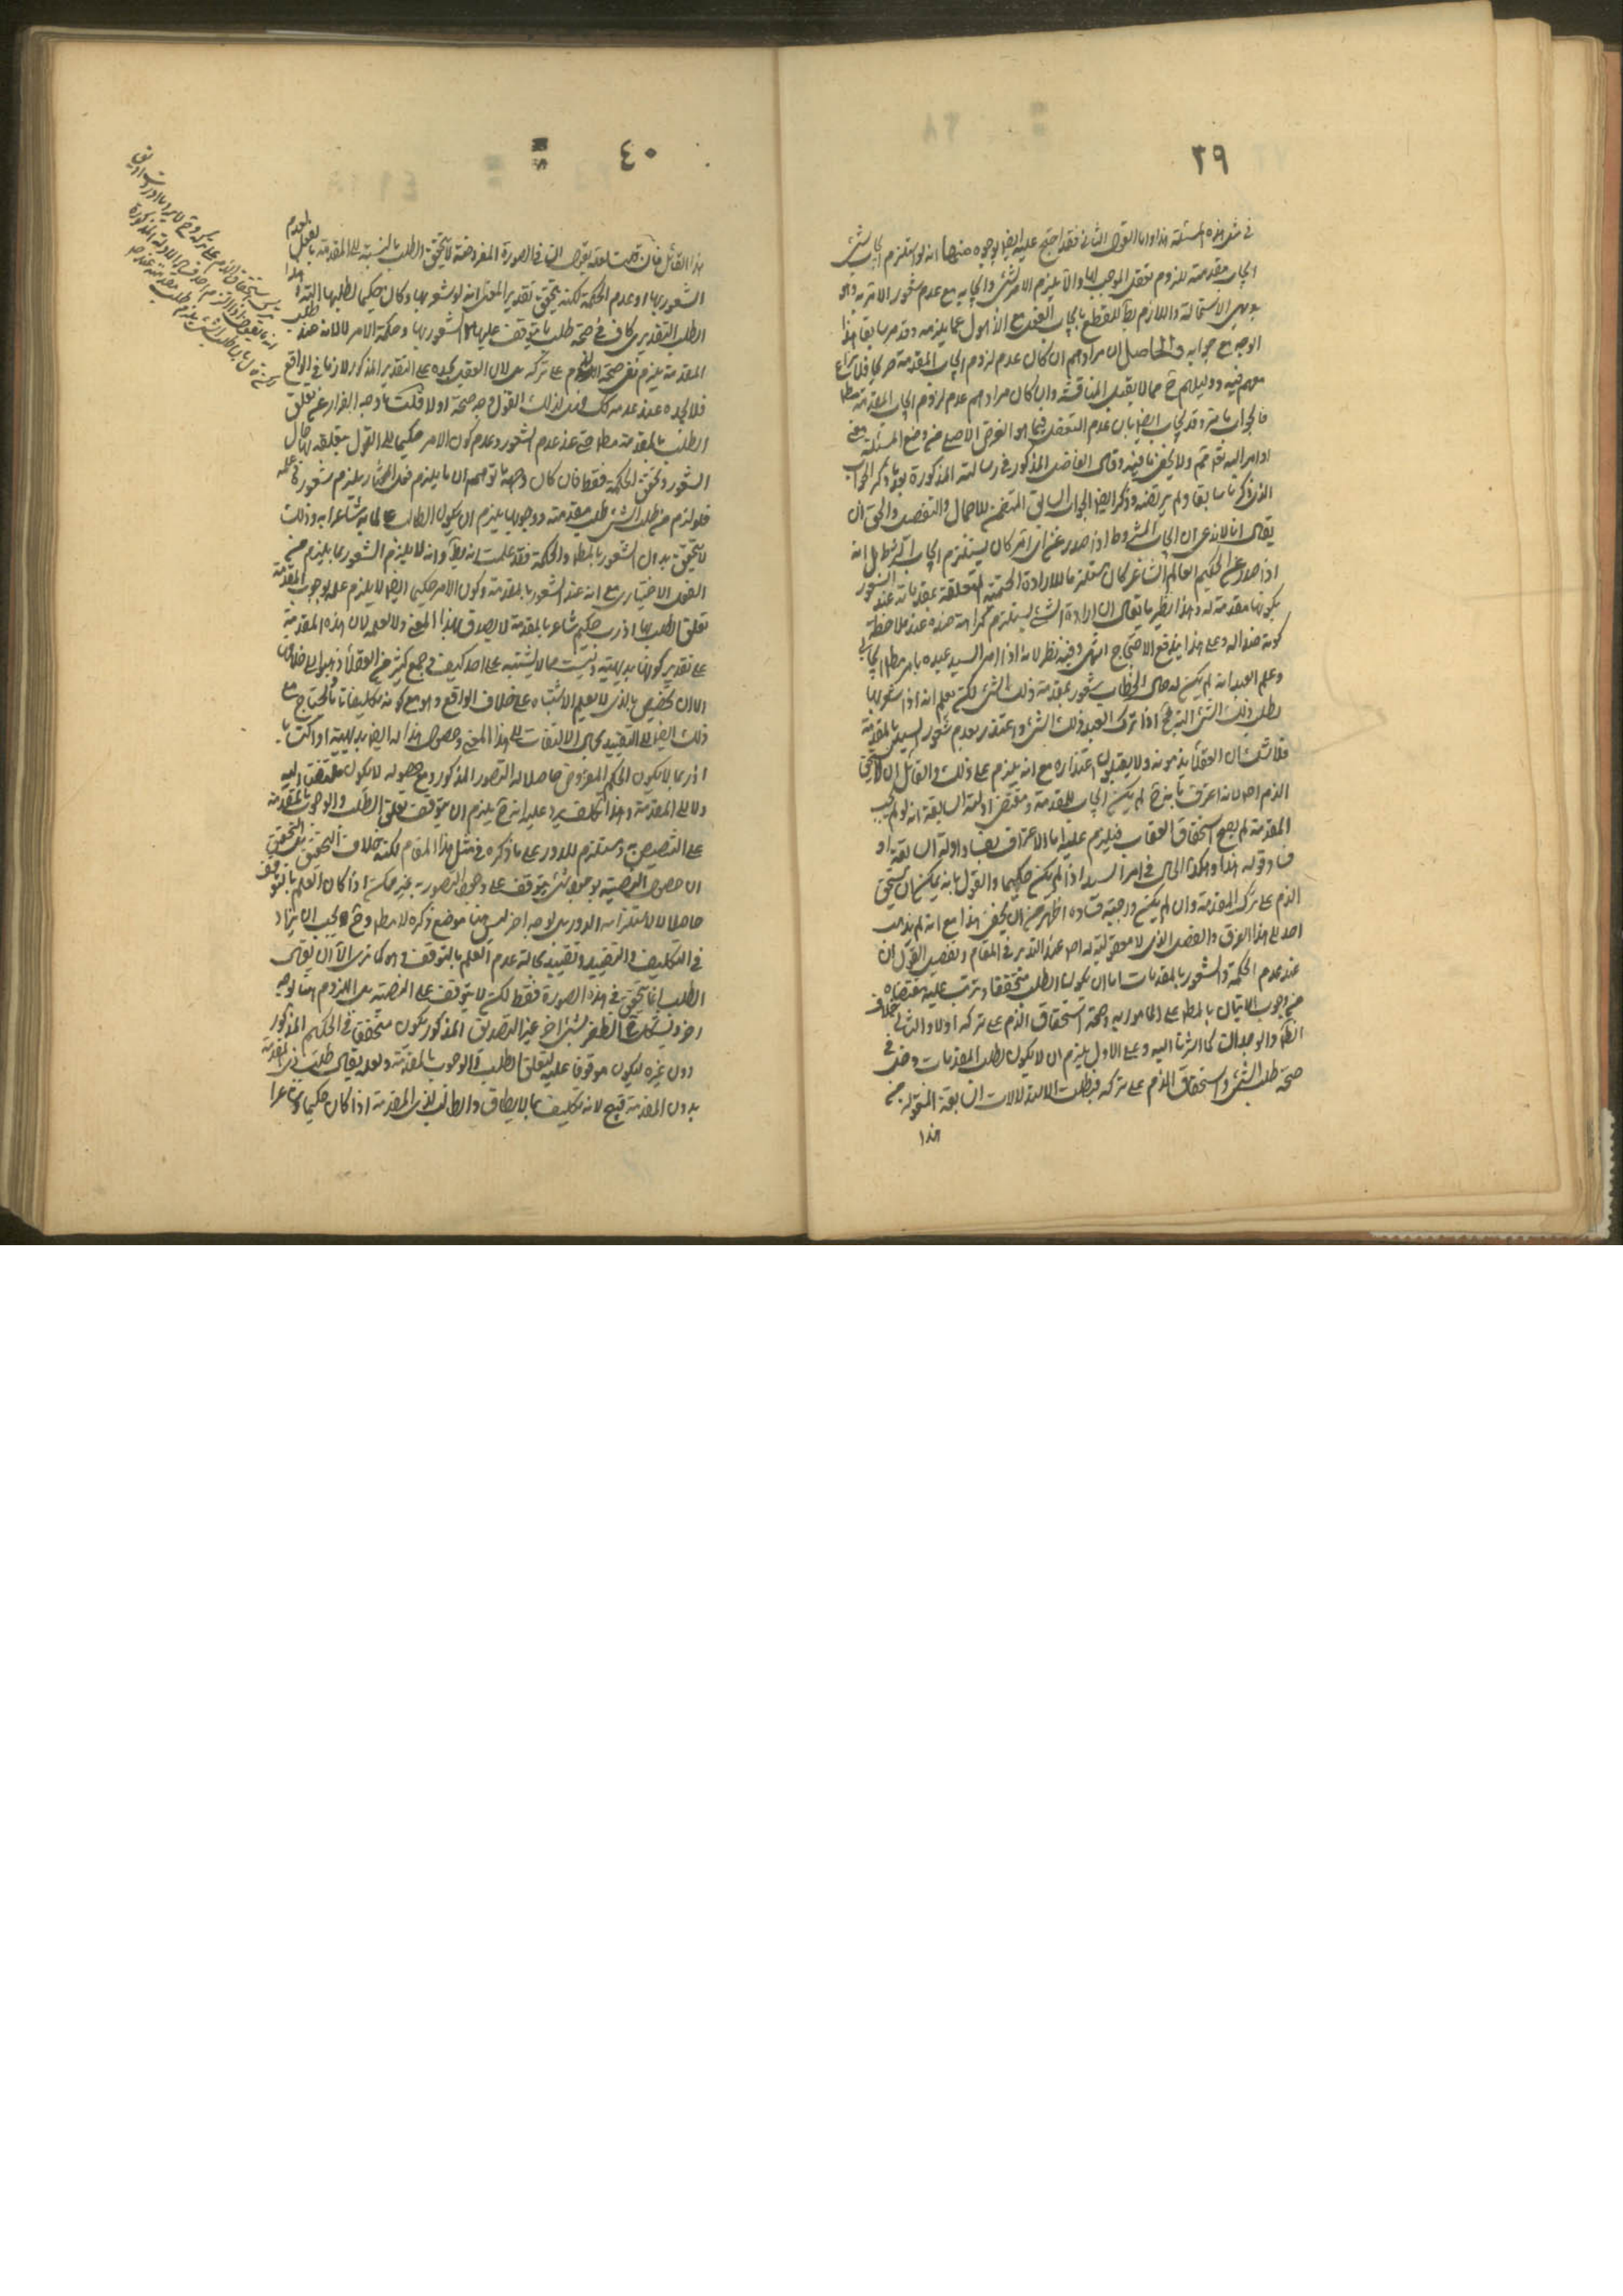 ٣٩
في مثل هذه المسئلة هذا واما القول الثاني فقد احتج عليه ايضا بوجوه منها انه لو استلزم ايجاب شئ
ايجاب مقدمته للزم تعقل الموجب لها والا يلزم الامر بشئ وايجابه مع عدم شعور الامر به وهو
بديهي الاستحالة واللازم بط للقطع بايجاب الفعل مع الذهول عما يلزمه وقد مر سابقا هذا
الوجه مع جوابه والحاصل ان مرادهم ان كان عدم لزوم ايجاب المقدمة صريحا فلا نزاع
معهم فيه ودليلهم ح مما لا يقبل المناقشة وان كان مرادهم عدم لزوم ايجاب المقدمة مطلقا
فالجواب ما مر وقد يجاب ايضا بان عدم التعقل فيما هو الغرض الاصلي من وضع المسئلة
اوامر الله تع لم يتم ولا يخفى ما فيه وقال الفاضل المذكور في رسالته المذكورة بعد ذكر الجواب
الذي ذكرنا سابقا ولم يرتضه وذكر ايضا الجواب السابق المتضمن للاجمال والتفصيل والحق ان
يقال انا لا ندعي ان ايجاب المشروط اذا صدر عن اي امر كان يستلزم ايجاب الشرط بل انه
اذا صدر عن الحكيم العالم الشاعر كان مستلزما للارادة الحتمية المتعلقة بمقدماته عند الشعور
بكونها مقدمة له وهذا نظير ما يقال ان ارادة الشئ يستلزم كراهة ضده عند ملاحظة
كونه ضدا له وعلى هذا يندفع الاحتجاج انتهى وفيه نظر لانه اذا امر السيد عبده بامر مطلق ايجابي
وعلم العبد انه لم يكن له حال الخطاب شعور بمقدمة ذلك الشئ لكن يعلم انه اذا شعر بها
لطلب ذلك الشئ البتة ح اذا ترك العبد ذلك الشئ واعتذر بعدم شعور السيد بالمقدمة
فلا شك ان العقلاء يذمونه ولا يقبلون اعتذاره مع انه يلزم على ذلك القائل ان لا يستحق
الذم اصلا لانه اعترف بانه ح لم يكن ايجاب للمقدمة ومقتضى ادلته السابقة انه لو لم يجب
المقدمة لم يصح استحقاق العقاب فيلزم عليه اما الاعتراف بفساد ادلته السابقة او
فساد قوله هذا وهكذا الحال في امر السيد اذا لم يكن حكيما والقول بانه يمكن ان يستحق
الذم على ترك المقدمة وان لم يكن واجبة فساده اظهر من ان يخفى هذا مع انه لم يذهب
احد الى هذا الفرق والفصل الذي لا معقولية له اصلا عند التدبر في المقام وتفصيل القول ان
عند عدم الحكمة والشعور بالمقدمات اما ان يكون الطلب متحققا ويترتب عليه مقتضاه
من وجوب الاتيان بالمطلوب على المأمور به وصحة استحقاق الذم على تركه اولا والثاني خلاف
الظ والوجدان كما اشرنا اليه وعلى الاول يلزم ان لا يكون لطلب المقدمات دخل في
صحة طلب الشئ واستحقاق الذم على تركه فبطلت الاستدلالات السابقة المنقولة من
هذا
٤٠
هذا القائل فان قلت لعله يقول ان في الصورة المفروضة لا يتحقق الطلب بالنسبة الى المقدمة بالفعل لعدم
الشعور بها او عدم الحكمة لكنه يتحقق تقديرا بمعنى انه لو شعر بها وكان حكيما لطلبها البتة وهذا
الطلب التقديري كاف في صحة طلب ما يتوقف عليها لا الشعور بها وحكمة الامر لا لانه عند طلب
المقدمة يلزم نفي صحة الذم على تركه بل لان العقل يحيله على التقدير المذكور لازما في الواقع
فلا يجده عند عدمه كك فبذلك القول وجه صحة او لا قلت ما وجه الفرار عن تعلق
الطلب بالمقدمة مطلقا حتى عند عدم الشعور وعدم كون الامر حكيما الى القول بتعلقه بها حال
الشعور وتحقق الحكمة فقط فان كان وجهه ما توهم ان ما يلزم فعل المختار يلزم شعوره
فلو لزم من طلب الشئ طلب مقدمته ووجوبها يلزم ان يكون الطالب عالما به شاعرا به وذلك
لا يتحقق بدون الشعور بالمطلوب والحكمة فقد علمت انه بط وانه لا يلزم الشعور بما يلزم من
الفعل الاختياري مع انه عند الشعور بالمقدمة وكون الامر حكيما ايضا لا يلزم علمه بوجوب المقدمة
تعلق الطلب بها اذ رب حكيم شاعر بالمقدمة لا يصدق بهذا المعنى ولا يعلمه لان هذه المقدمة
على تقدير كونها بديهية ليست مما لا يشتبه على احد كيف وجمع كثير من العقلاء ذهبوا الى خلافها
الا ان يخصص بالذي لا يعلم الاشتباه على خلاف الواقع وهو مع كونه تكليفا ما لا يحتاج مع
ذلك ايضا الى التقييد بحال الالتفات الى هذا المعنى وحصول هذا له ايضا بديهية او اكتسابا
اذ ربما لا يكون الحكم المفروض حاصلا له التصور المذكور ومع حصوله لا يكون ملتفتا اليه
ولا الى المقدمة وهذا تكلف يرد عليه انه ح يلزم ان يتوقف تعلق الطلب والوجوب بالمقدمة
على التصديق به ومستلزم للدور على ما ذكره في مثل هذا المقام لكنه خلاف التحقيق بل التحقيق
ان حصول التصديق بوجوب شئ يتوقف على وجود التصور به بغير حكمة اذا كان العلم بالتوقف
حاصلا لا لاستلزامه الدور بل لوجه اخر ليس هنا موضع ذكره لا مطلقا وح يجب ان يزاد
في التكليف والتقييد وتقييد بحالة عدم العلم بالتوقف وهو كما ترى الا ان يقال
الطلب انما يتحقق في هذه الصورة فقط لكن لا يتوقف على التصديق بل اللزوم هنا لوجه
اخر ويشكل ح الظفر بشئ اخر غير التصديق المذكور يكون متحققا في الحكيم المذكور
دون غيره ليكون موقوفا عليه لتعلق الطلب والوجوب بالمقدمة ولعله يقال طلب ذي المقدمة
بدون المقدمة قبيح لانه تكليف بما لا يطاق والطالب لذي المقدمة اذا كان حكيما شاعرا